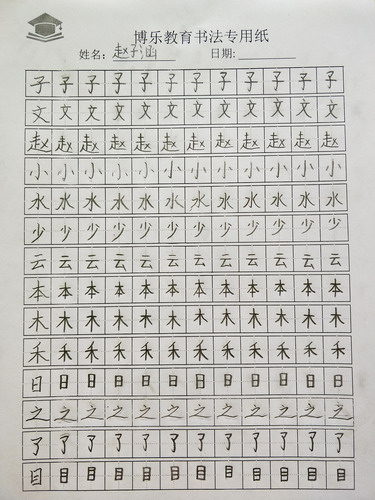 博乐教育书法专用纸
姓名：赵子涵 日期：
子子子子子子子子子子子子
文文文文文文文文文文文文
赵赵赵赵赵赵赵赵赵赵赵赵
小小小小小小小小小小小小
水水水水水水水水水水水水
少少少少少少少少少少少少
云云云云云云云云云云云云
本本本本本本本本本本本本
木木木木木木木木木木木木
禾禾禾禾禾禾禾禾禾禾禾禾
日日日日日日日日日日日日
之之之之之之之之之之之之
了了了了了了了了了了了了
目目目目目目目目目目目目